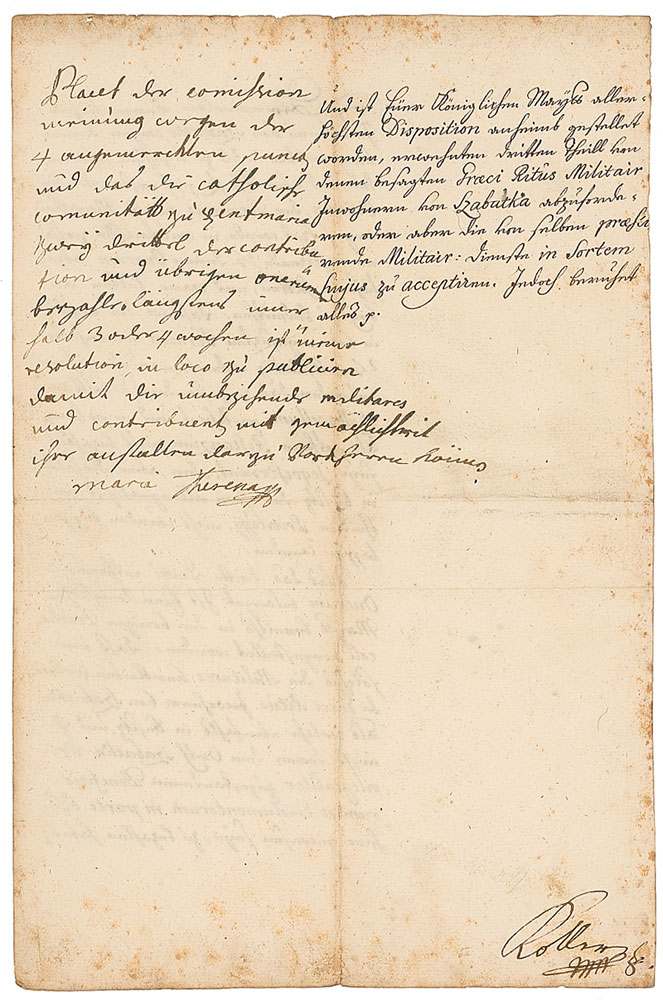 Placet der comission
meinung wegen der
4 angemerckten puncten
und das die catholische
comunitätt zu Zentmaria
zwey drittel der contribu
tion und übrigen onerum
bezahle, längstens inner
halb 3 oder 4 wochen ist meine
resolution in loco zu publiciren
damit die umbziehende militares
und contribuenten mit gemächlichkeit
ihre anstalten darzu Vorkehren können
Maria Theresia
Und ist Euer Königlichen Mayts aller-
höchsten Disposition anheimb gestellet
worden, erwehnten dritten Theill von
denen besagten Græci Ritûs Militair
Inwohnern von Szabatka abzuforde-
ren, oder aber die von selben præsti-
rende Militair: Dienste in Sortem
hujus zu acceptiren. Jedoch beruhet
alles p.
Koller